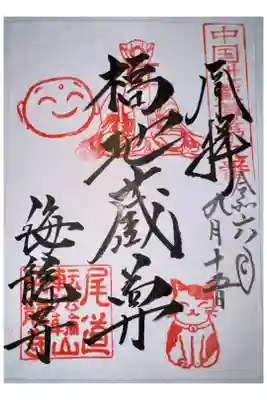 奉拝
令和六年九月十五日
橋地蔵尊
海龍寺
尾道
転法輪山